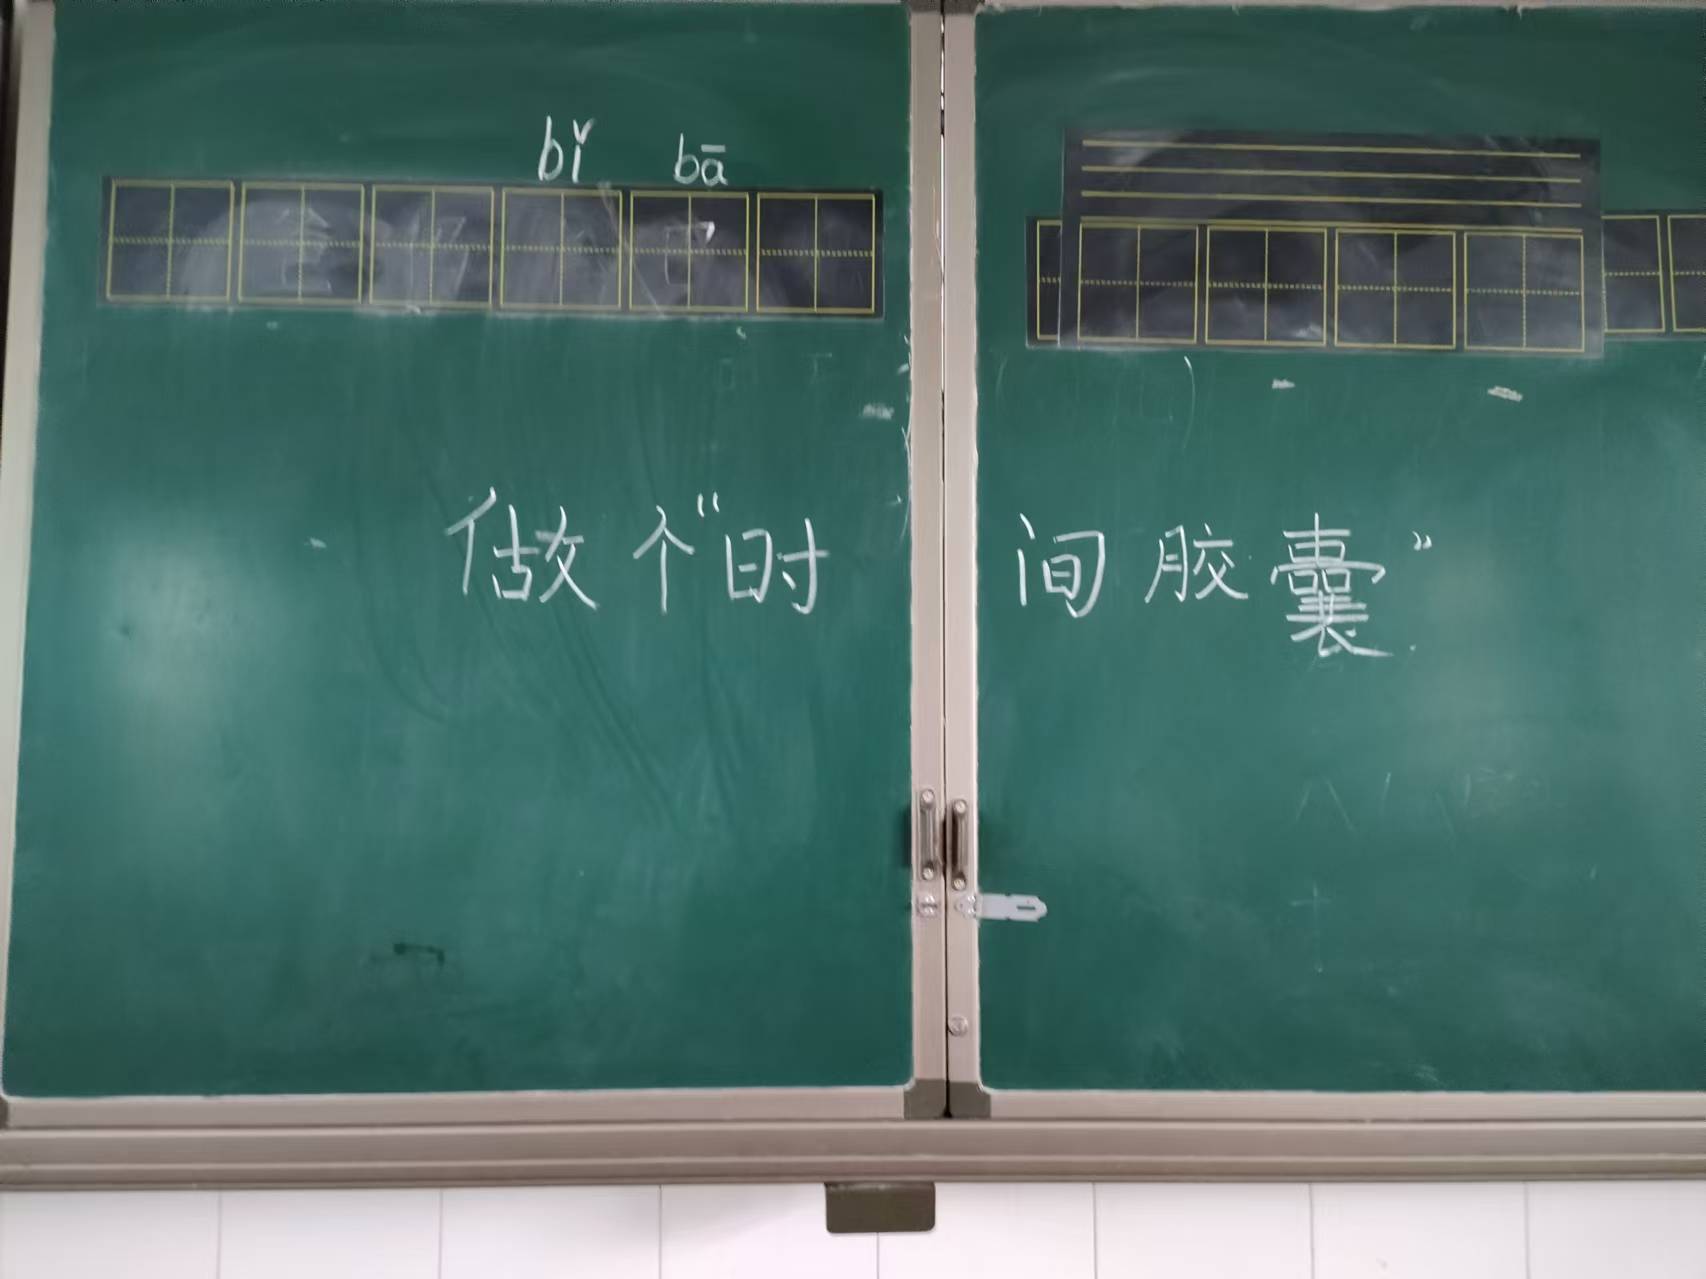 bǐ bā
做个“时间胶囊”